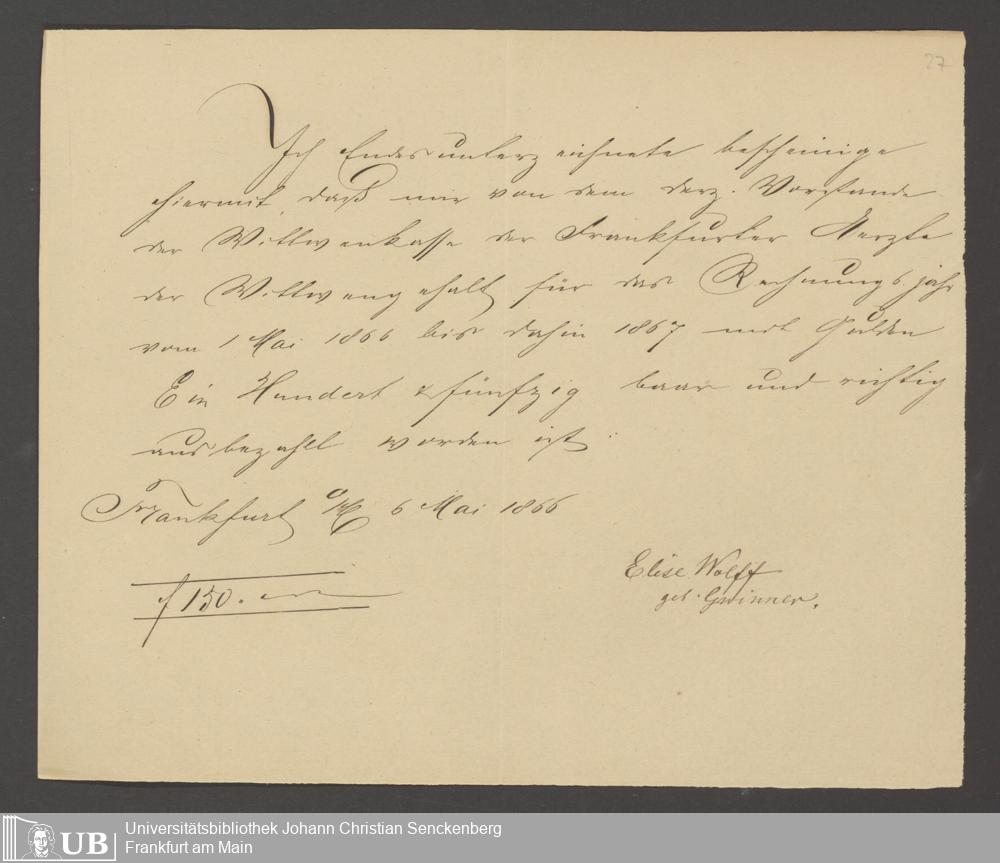 27
Ich Endesunterzeichnete bescheinige
hiermit, daß mir von dem derz. Vorstande
der Wittwenkasse der Frankfurter Aerzte
der Wittwengehalt für das Rechnungsjahr
vom 1 Mai 1866 bis dahin 1867 mit Gulden
Ein Hundert & fünfzig baar und richtig
ausbezahlt worden ist.
Frankfurt a/M 6 Mai 1866
f 150.
Elise Wolff
geb. Gwinner.
UB
Universitätsbibliothek Johann Christian Senckenberg
Frankfurt am Main